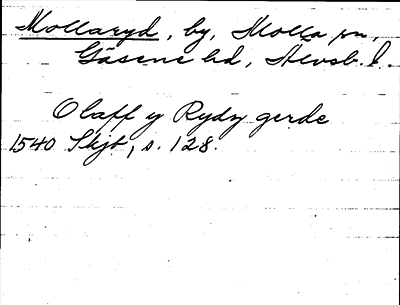 Mollaryd, by, Molla sn,
Gäsene hd, Älvsb. l.
Olaff y Rydz gerde
1540 Skjb, s. 128.